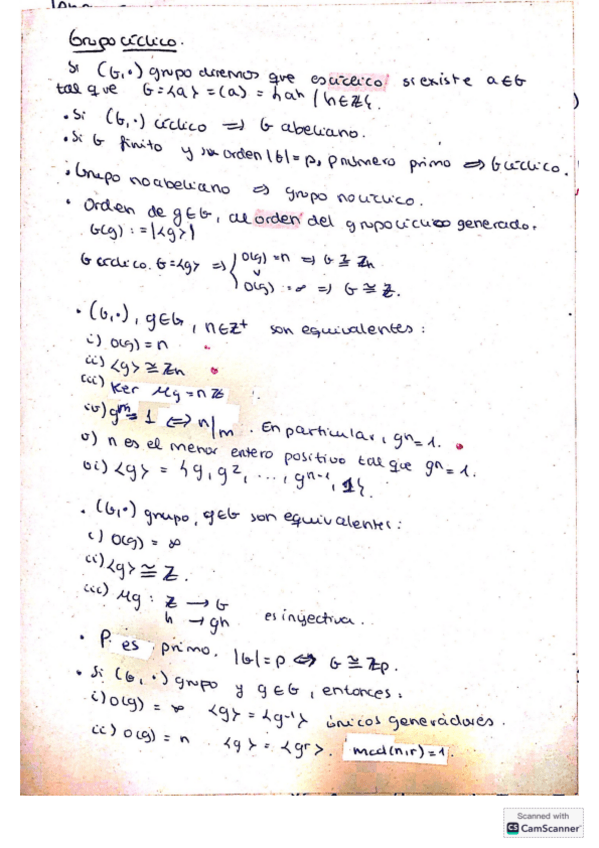 Grupo cíclico.
Si (G,·) grupo diremos que es cíclico si existe a∈G
tal que G=<a> = (a) = {a^h / h∈Z}.
• Si (G,·) cíclico ⇒ G abeliano.
• Si G finito y su orden |G|=p, p número primo ⇒ G cíclico.
• Grupo no abeliano ⇒ grupo no cíclico.
• Orden de g∈G, al orden del grupo cíclico generado.
O(g) := |<g>|
G cíclico. G=<g> ⇒ { O(g)=n ⇒ G ≅ Zn
v
O(g) = ∞ ⇒ G ≅ Z.
• (G,·), g∈G, n∈Z⁺ son equivalentes:
i) O(g) = n
ii) <g> ≅ Zn
iii) Ker μg = nZ
iv) g^m = 1 ⇔ n|m. En particular, g^n = 1.
v) n es el menor entero positivo tal que g^n = 1.
vi) <g> = {g, g², ..., g^n-1, 1}.
• (G,·) grupo, g∈G son equivalentes:
i) O(g) = ∞
ii) <g> ≅ Z.
iii) μg : Z → G
h → g^h es inyectiva.
• P es primo. |G|=p ⇔ G ≅ Zp.
• Si (G,·) grupo y g∈G, entonces:
i) O(g) = ∞ <g> = <g⁻¹> únicos generadores.
ii) O(g) = n <g> = <g^r>. mcd(n,r)=1.
Scanned with
CS CamScanner